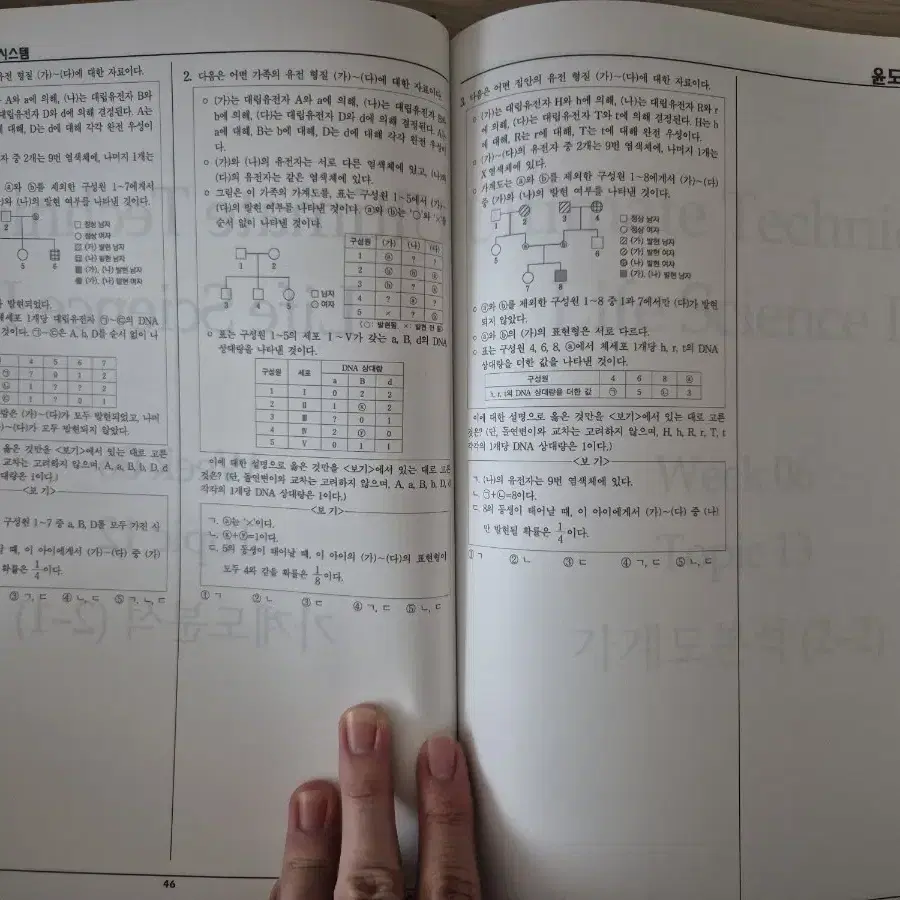 시스템
유전 형질 (가)~(다)에 대한 자료이다.
A와 a에 의해, (나)는 대립유전자 B와
대립유전자 D와 d에 의해 결정된다. A는
에 대해, D는 d에 대해 각각 완전 우성이
자 중 2개는 9번 염색체에, 나머지 1개는
ⓐ와 ⓑ를 제외한 구성원 1~7에게서
)와 (나)의 발현 여부를 나타낸 것이다.
2
5
6
□ 정상 남자
○ 정상 여자
(가) 발현 남자
(나) 발현 남자
(가), (나) 발현 남자
(가), (나) 발현 여자
발현되었다.
체세포 1개당 대립유전자 ㉠~㉢의 DNA
것이다. ㉠~㉢은 A, b, D를 순서 없이 나
4 5 6 7
㉠ ? 0 1 2
㉡ 1 ? ? 2
㉢ 0 1 ? ?
(가)~(다)가 모두 발현되었고, 나머
~(다)가 모두 발현되지 않았다.
옳은 것만을 <보기>에서 있는 대로
교차는 고려하지 않으며, A, a, B, b, D, d
대량은 1이다.)
<보 기>
구성원 1~7 중 a, B, D를 모두 가진 사
날 때, 이 아이에게서 (가)~(다) 중 (가)
확률은 1/4이다.
③ ㄱ, ㄷ ④ ㄴ, ㄷ ⑤ ㄱ, ㄴ, ㄷ
46
2. 다음은 어떤 가족의 유전 형질 (가)~(다)에 대한 자료이다.
○ (가)는 대립유전자 A와 a에 의해, (나)는 대립유전자 B와
b에 의해, (다)는 대립유전자 D와 d에 의해 결정된다. A는
a에 대해, B는 b에 대해, D는 d에 대해 각각 완전 우성이
다.
○ (가)와 (나)의 유전자는 서로 다른 염색체에 있고, (나)와
(다)의 유전자는 같은 염색체에 있다.
○ 그림은 이 가족의 가계도를, 표는 구성원 1~5에서 (가)~
(다)의 발현 여부를 나타낸 것이다. ⓐ와 ⓑ는 '○'와 '×'를
순서 없이 나타낸 것이다.
1 2
3 4 5
□ 남자
○ 여자
구성원 (가) (나) (다)
1 ⓐ ? ?
2
3 ⓑ ?
4
5 × ?
(○: 발현됨, ×: 발현 안 됨)
○ 표는 구성원 1~5의 세포 Ⅰ~Ⅴ가 갖는 a, B, d의 DNA
상대량을 나타낸 것이다.
구성원 세포 DNA 상대량
a B d
1 Ⅰ 0 2 2
2 Ⅱ 1 ⓧ 2
3 Ⅲ ? 0 1
4 Ⅳ 2 ⓨ 0
5 Ⅴ 0 1 1
이에 대한 설명으로 옳은 것만을 <보기>에서 있는 대로 고른
것은? (단, 돌연변이와 교차는 고려하지 않으며, A, a, B, b, D, d
각각의 1개당 DNA 상대량은 1이다.)
<보 기>
ㄱ. ⓐ는 '×'이다.
ㄴ. ⓧ+ⓨ=1이다.
ㄷ. 5의 동생이 태어날 때, 이 아이의 (가)~(다)의 표현형이
모두 4와 같을 확률은 1/8이다.
① ㄱ ② ㄴ ③ ㄷ ④ ㄱ, ㄷ ⑤ ㄴ, ㄷ
윤도
3. 다음은 어떤 집안의 유전 형질 (가)~(다)에 대한 자료이다.
○ (가)는 대립유전자 H와 h에 의해, (나)는 대립유전자 R와 r
에 의해, (다)는 대립유전자 T와 t에 의해 결정된다. H는 h
에 대해, R는 r에 대해, T는 t에 대해 완전 우성이다.
○ (가)~(다)의 유전자 중 2개는 9번 염색체에, 나머지 1개는
X 염색체에 있다.
○ 가계도는 ⓐ와 ⓑ를 제외한 구성원 1~8에게서 (가)~(다)
중 (가)와 (나)의 발현 여부를 나타낸 것이다.
1 2 3 4
ⓐ ⓑ 6
7 8
□ 정상 남자
○ 정상 여자
(가) 발현 남자
(가) 발현 여자
(나) 발현 여자
(가), (나) 발현 남자
○ ⓐ와 ⓑ를 제외한 구성원 1~8 중 1과 7에서만 (다)가 발현
되지 않았다.
○ ⓐ와 ⓑ의 (가)의 표현형은 서로 다르다.
○ 표는 구성원 4, 6, 8, ⓐ에서 체세포 1개당 h, r, t의 DNA
상대량을 더한 값을 나타낸 것이다.
구성원 4 6 8 ⓐ
h, r, t의 DNA 상대량을 더한 값 ㉠ 5 ㉡ 3
이에 대한 설명으로 옳은 것만을 <보기>에서 있는 대로 고른
것은? (단, 돌연변이와 교차는 고려하지 않으며, H, h, R, r, T, t
각각의 1개당 DNA 상대량은 1이다.)
<보 기>
ㄱ. (나)의 유전자는 9번 염색체에 있다.
ㄴ. ㉠+㉡=8이다.
ㄷ. 8의 동생이 태어날 때, 이 아이에게서 (가)~(다) 중 (나)
만 발현될 확률은 1/4이다.
① ㄱ ② ㄴ ③ ㄷ ④ ㄱ, ㄷ ⑤ ㄴ, ㄷ